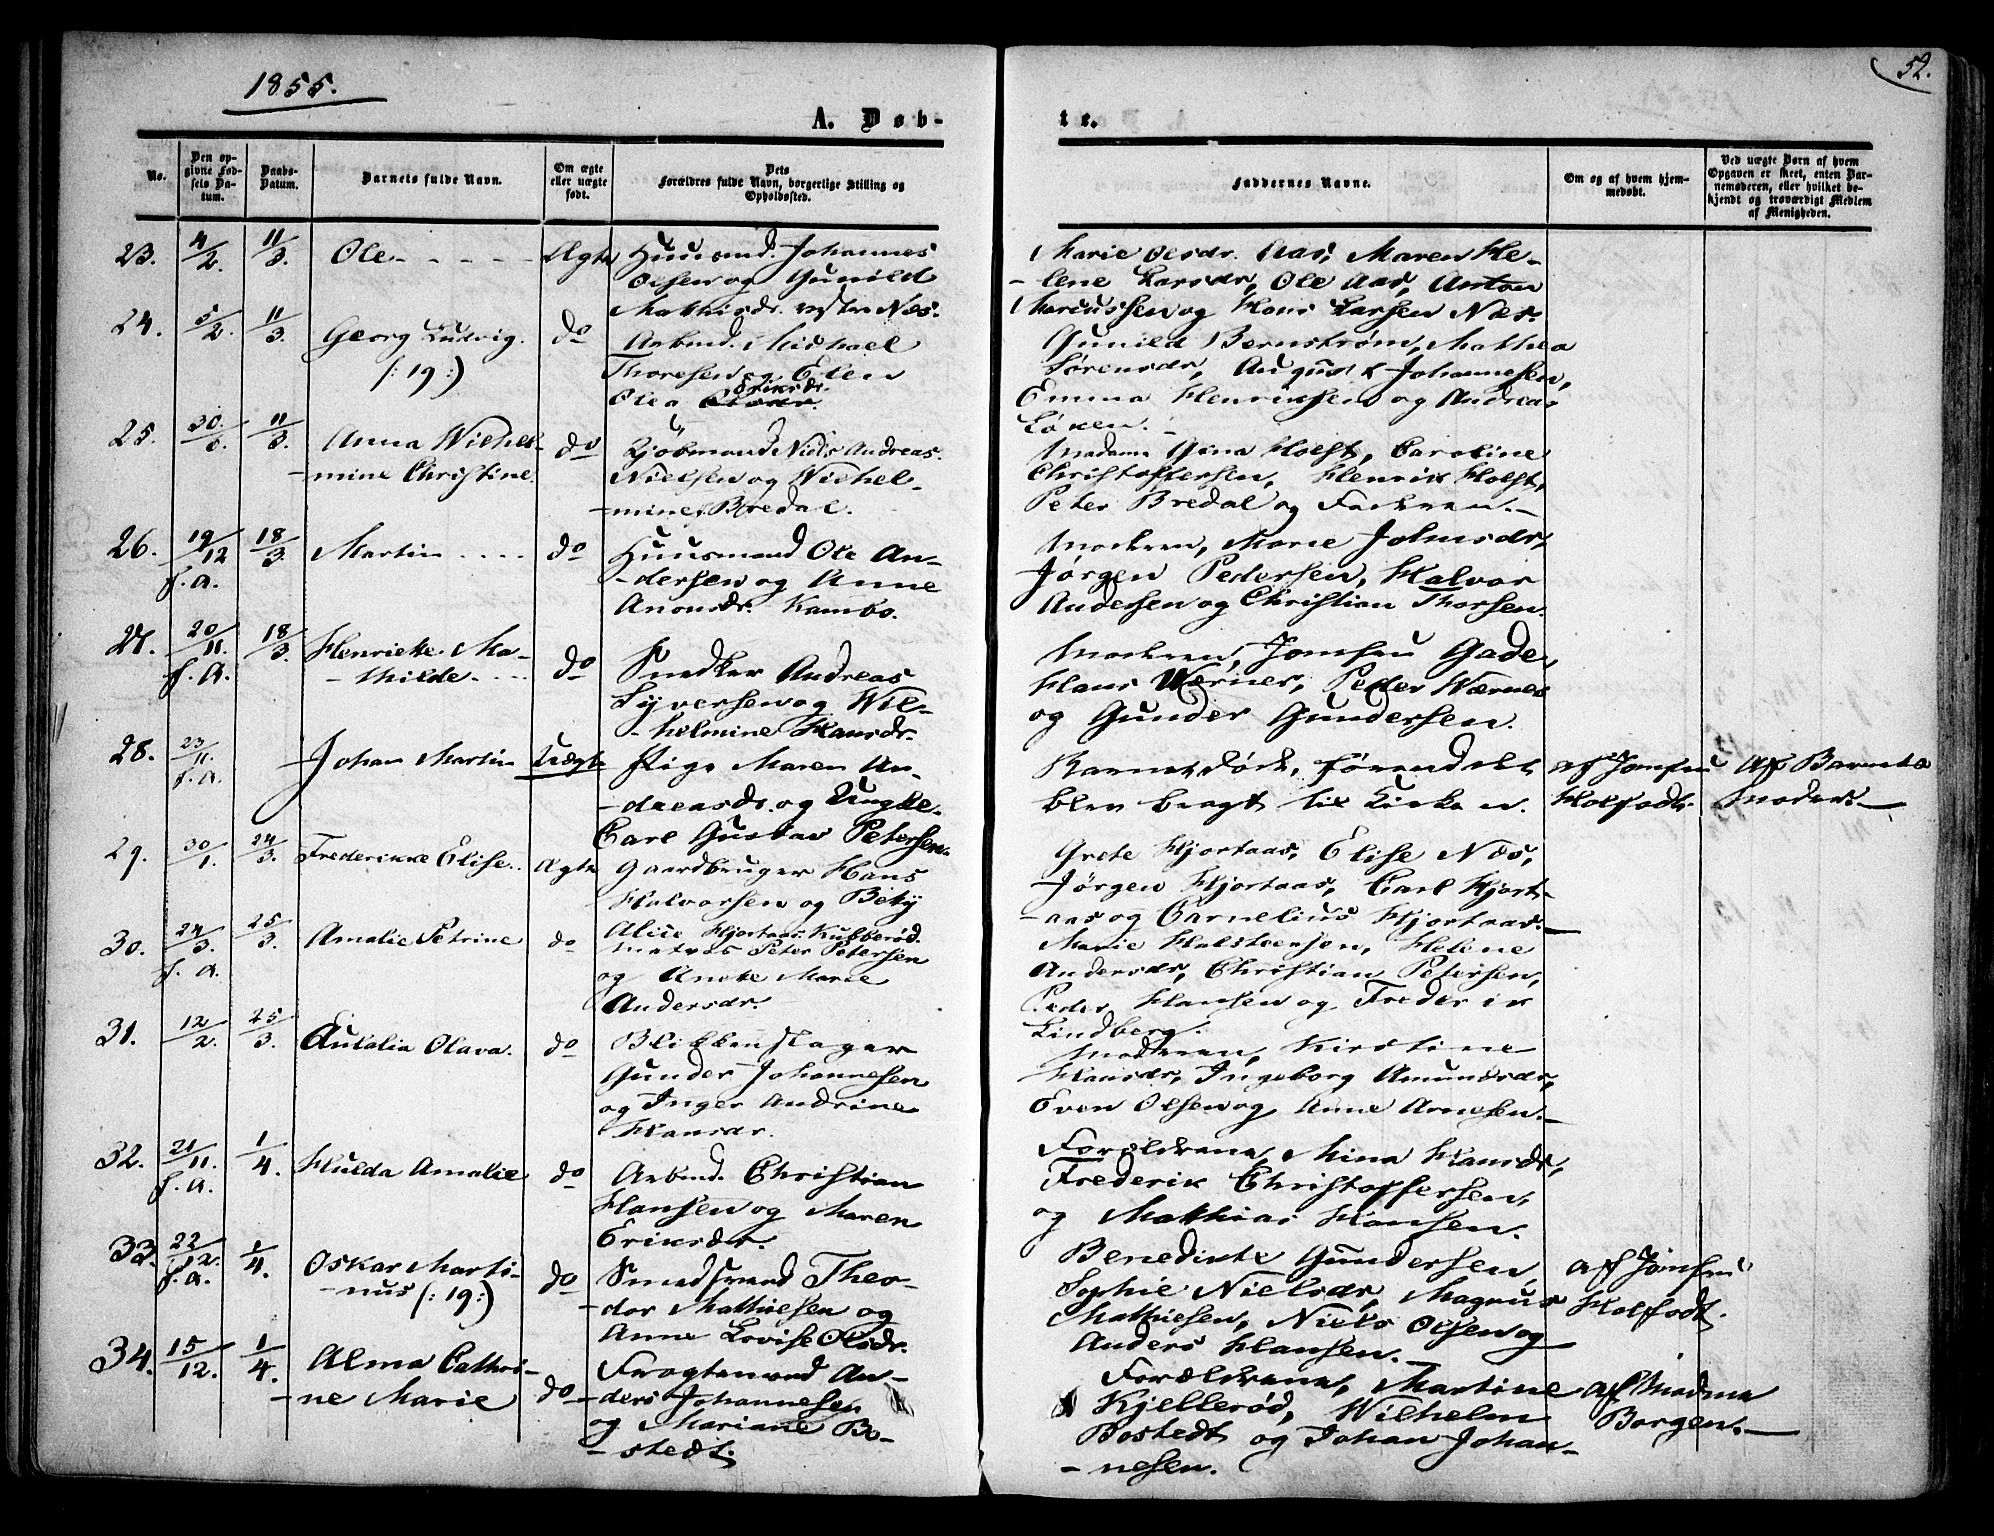 1855.
52.
A. Døb-
te.
No.
Den op-
givne Fød-
sels Da-
tum.
Daabs-
Datum.
Barnets fulde Navn.
Om ægte
eller uægte
født.
Dets
Forældres fulde Navn, borgerlige Stilling og
Opholdssted.
Faddernes Navne.
Om og af hvem hjem-
medøbt.
Ved uægte Børn af hvem
Opgaven er skeet, enten Bar-
nemoderen, eller hvilket be-
kjendt og troværdigt Medlem
af Menigheden.
23. 4/2. 11/3. Ole - - - - - Ægte Huusmd. Johannes
Olsen og Gunild
Mathisdr. vestre Næs.
Marie Olsdr. Aas, Maren He-
-lene Larsdr, Ole Aas, Anton
Mariussen og Hans Larsen Næs.
24. 5/2. 11/3. Georg Ludvig. do Arbmd. Michael
(:19:) Thoresen og Elen
Olea Eriksdr.
Gunild Bernstrøm, Mathea
Sørensdr, August Johannesen,
Emma Henriksen og Andreas
Løken.-
25. 30/ 11/3. Anna Wilhel- do Kjøbmand Niels Andreas
-mine Christine. Nielsen og Wilhel-
-mine Bredal.
Madame Gina Holst, Caroline
Christoffersen, Henrik Holst,
Peter Bredal og Faderen.-
26. 19/12 18/3. Martin .... do Huusmand Ole An-
f.a. -dersen og Anne
Aronsdr. Kambo.
Moderen, Marie Johnsdr,
Jørgen Pedersen, Halvor
Andersen og Christian Thorsen.
27. 20/11. 18/3. Henriette Ma- do Snedker Andreas
f.a. -thilde.... Syversen og Wil-
-helmine Hansdr.
Moderen, Jomfru Gade,
Hans Wærner, Peder Wærner
og Gunder Gundersen.
28. 23/11. Johan Martin Uægte Pige Maren An-
f.a. -dreasdr. og Ungke.
Carl Gustav Petersen.
Barnet døde, førend det
blev bragt til Kirken.
af Jomfru
Holfodt.
Af Barnets
Moder.-
29. 30/1. 24/3. Frederikke Elise.. Ægte Gaardbruger Hans
Halvorsen og Betzy
Alice Hjortaas, Kubberød.
Grete Hjortaas, Elise Næs,
Jørgen Hjortaas, Carl Hjort-
-aas og Cornelius Hjortaas.-
30. 24/3. 25/3. Amalie Petrine do Matros Peter Petersen
f.a. og Anete Marie
Andersdr.
Marie Halsteensen, Helene
Andersdr, Christian Petersen,
Peder Hansen og Frederik
Lindberg.
31. 12/2. 25/3. Eulalia Olava. do Blikkenslager
Gunder Johannesen
og Inger Andrine
Hansdr.
Moderen, Kirstine
Hansdr, Ingeborg Amundsdr,
Even Olsen og Anne Arnesen.-
32. 21/11. 1/4. Hulda Amalie do Arbmd. Christian
f.a. Hansen og Maren
Eriksdr.
Forældrene, Mina Hansdr,
Frederik Christoffersen,
og Mathias Hansen.
33. 22/12. 1/4. Oskar Marti- do Smedsvend Theo-
f.a. -nus (:19:) -dor Mathiesen og
Anne Lovise Olsdr.
Benedikte Gundersen,
Sophie Nielsdr, Magnus
Mathiesen, Niels Olsen og
Anders Hansen.-
af Jomfru
Holfodt.
34. 15/12. 1/4. Alma Cathri- do Fragtemand An-
-ne Marie -ders Johannesen
og Mariane Bo-
-stedt.
Forældrene, Martine
Kjellerød, Wilhelm
Bostedt og Johan Johan-
-nesen.
af Madme
Borgen.-